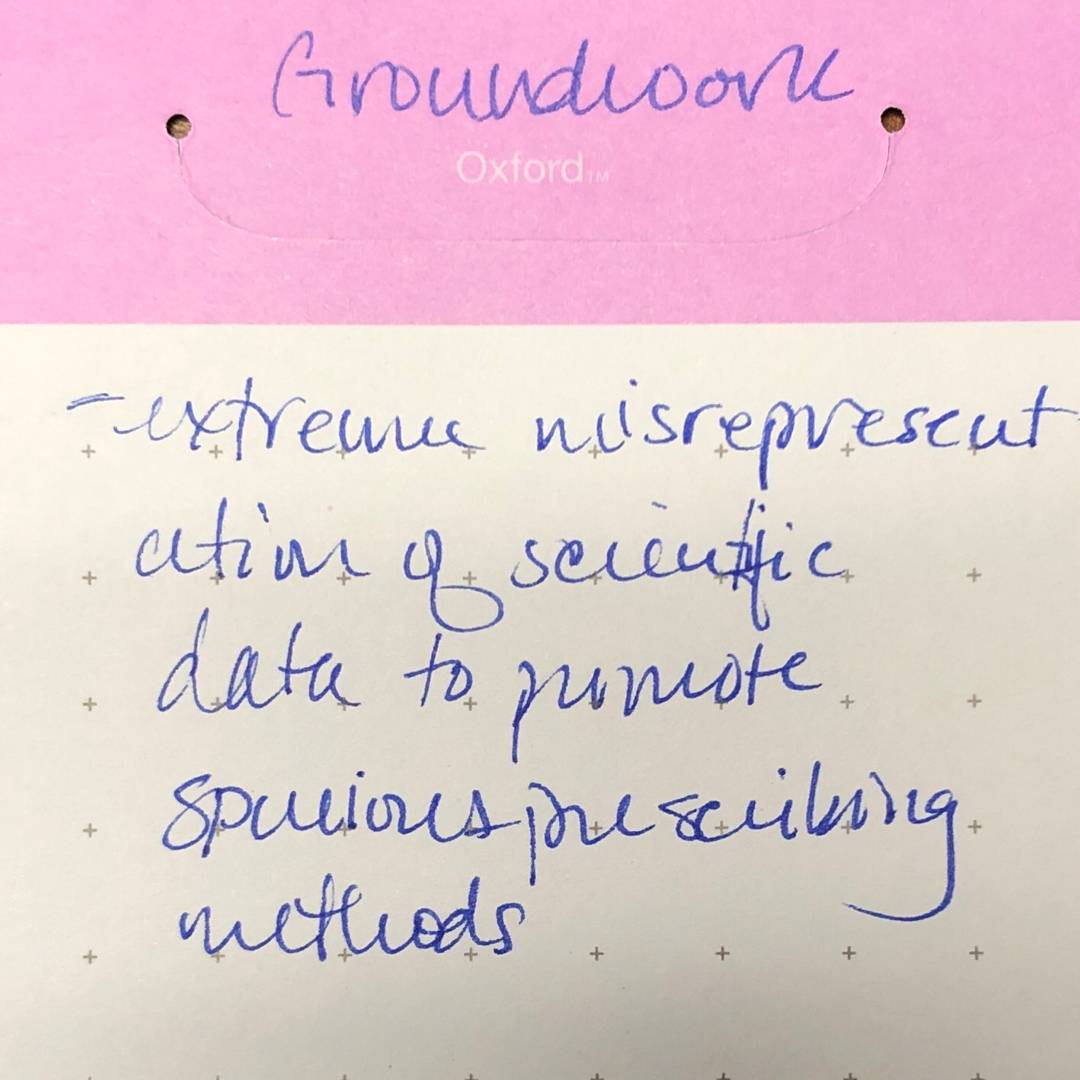 Groundwork
Oxford™
- extreme misrepresent
ation of scientific
data to promote
spurious prescribing
methods